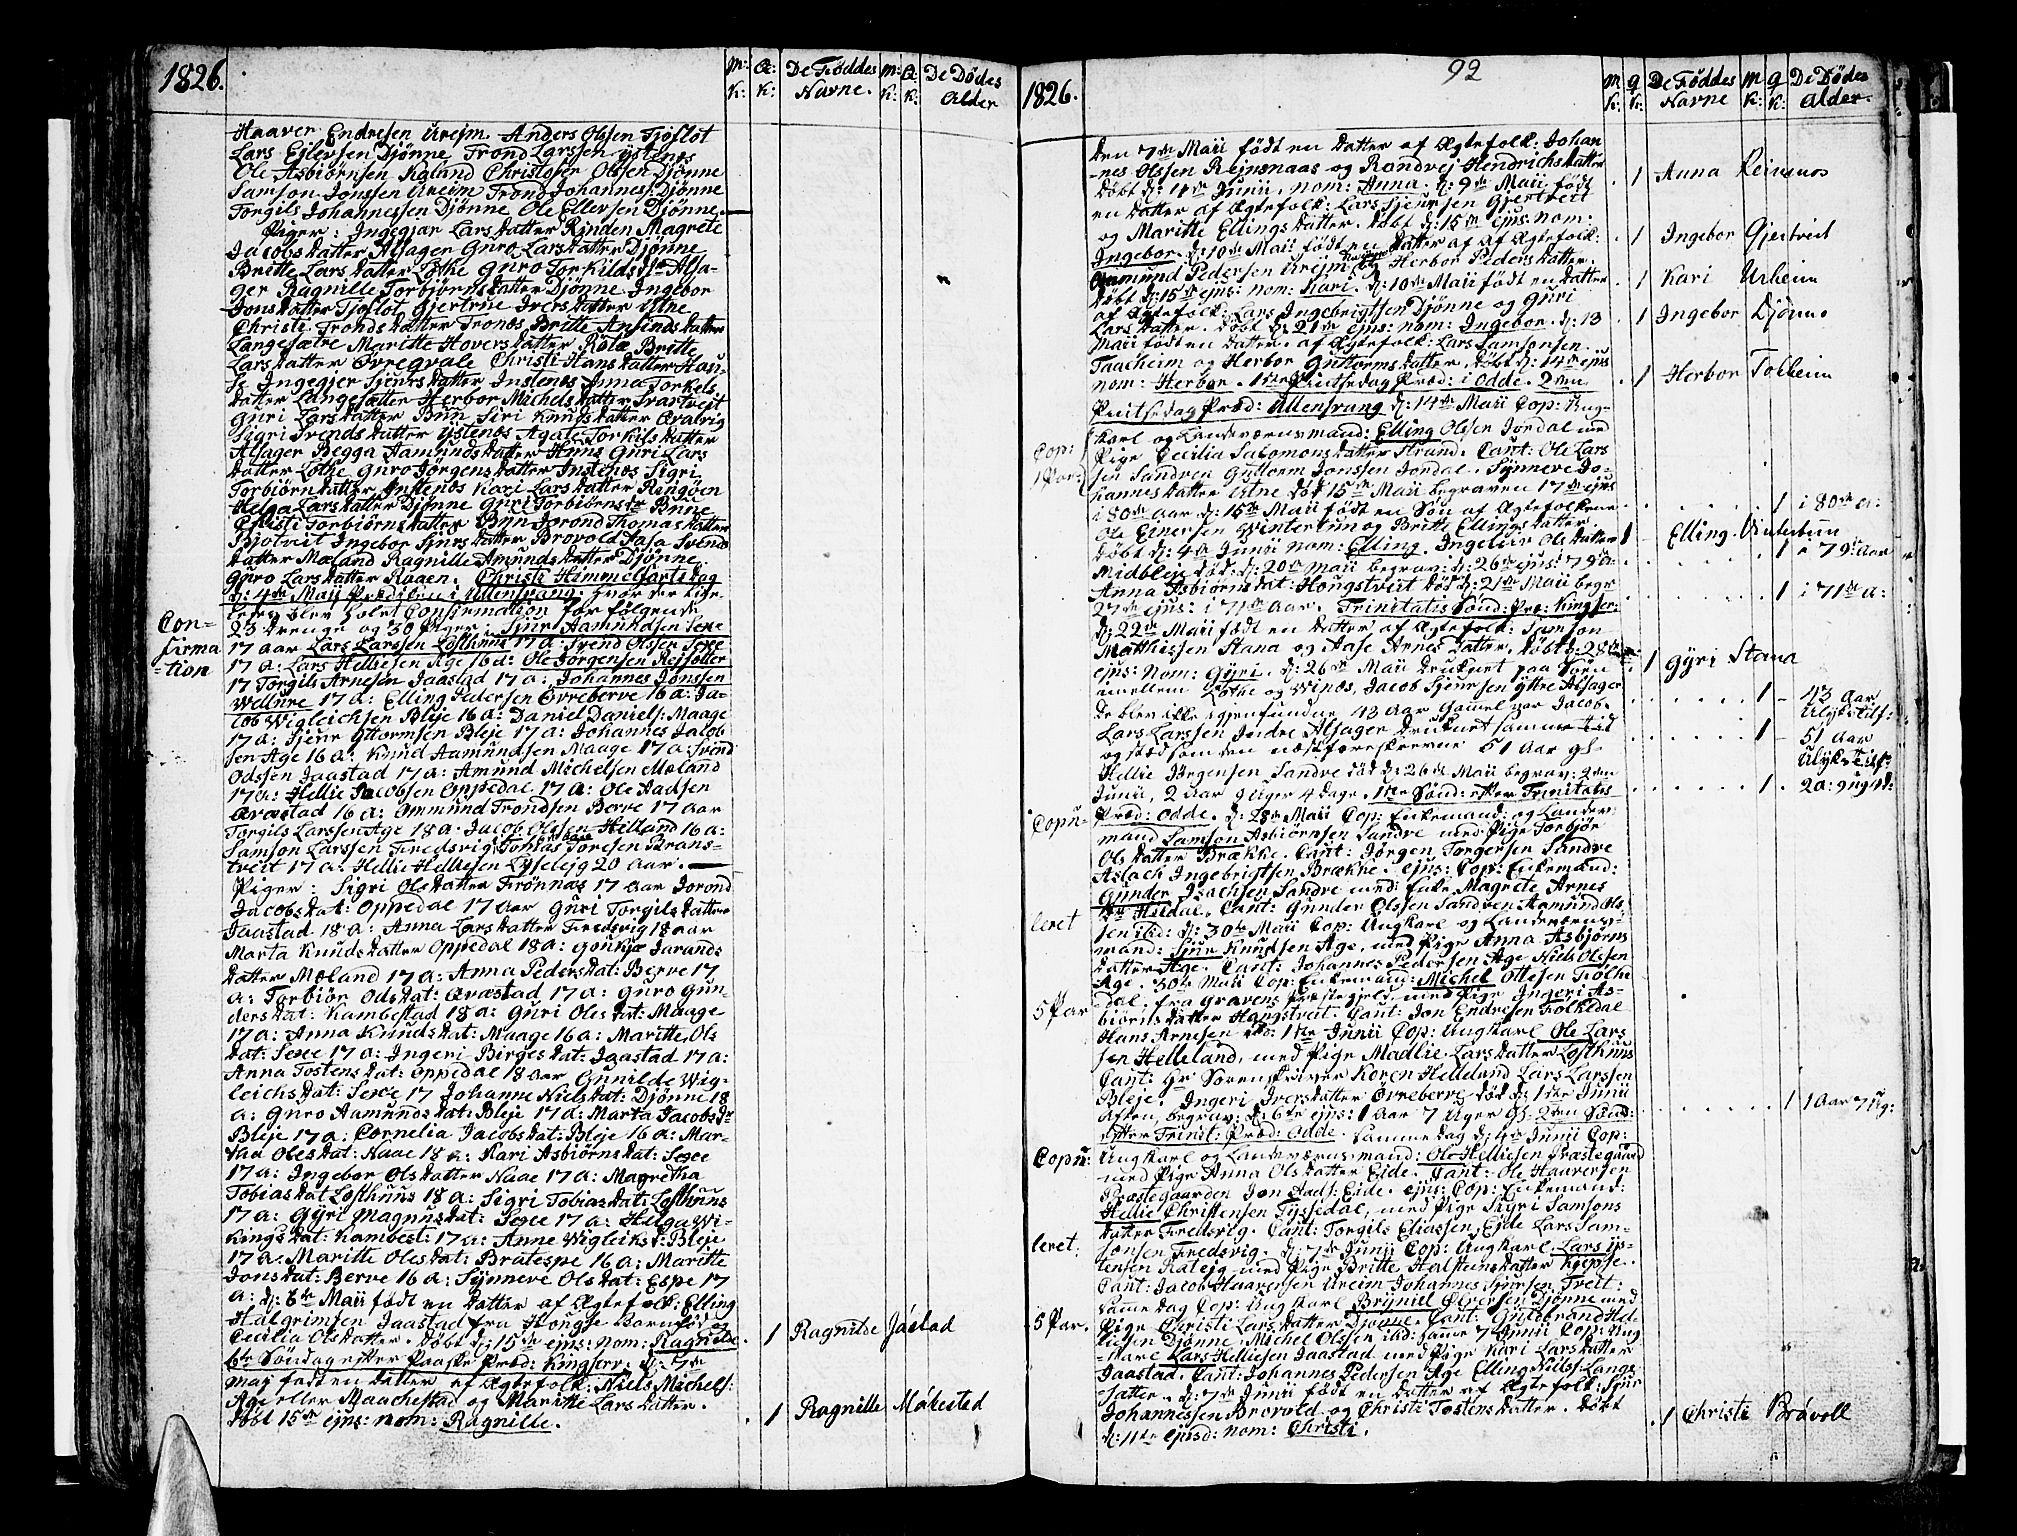 1826.
M: K: Q: K: De Føddes Navne. M: K: Q: K: De Dødes Alder
Haaver Endresen Ureim Anders Olssen Tjoflot
Lars Ejlersen Djønne Trond Larssen ystenes
Ole Asbiørnsen Kaland Christofer Olssen Djønne
Samson Jonssen Ureim Trond Johanness: Djønne
Torgils Johannessen Djønne Ole Ellersen Djønne.
Piger: Ingegjær Larsdatter Rinden Magrete
Jacobsdatter Alsager Guro Larsdatter Djønne
Britte Larsdatter Lothe Guro Torkildsdtr Alsa-
ger Ragnille Torbjørnsdatter Djønne Ingebor
Jonsdatter Tjoflot Gjertrue Iversdatter Utne
Christi Trondsdatter Tronæs Britte Ansindsdatter
Langesætre Maritte Hoversdatter Rotæ Britte
Larsdatter Ovregvale Christi Hansdatter Hau-
se Ingegjer Sjursdatter Instenes Anna Torkels
datter Langesætter Herbor Michelsdatter Trastveit
Guri Larsdatter Bnn Siri Knudsdatter Qvalvig
Sigri Trendsdatter ystenæs Agate Torkilsdatter
Alsager Begga Aamundsdatter Huus Guri Lars
datter Lothe Guro Jørgensdatter Instenæs Sigri
Torbiørndatter Instenæs Kari Larsdatter Ringøen
Helga Larsdatter Djønne Guri Torbiørnsdr Bnne
Christi Torbiørnsdatter Byn Jorond Thomasdatter
Bjotveit Ingebor Sjursdatter Brovold Aasa Svends
datter Mæland Ragnille Amundsdatter Djønne
Guro Larsdatter Raaen. Christi Himmelfartsdag
d: 4de Maji Prædiken i Ullensvang. hvor der lige-
ledes blev holdt Confirmation for følgende
Con-
firma
-tion
23 Drenge og 30 Piger: Sjur Aamundsen Sexe
17 aar Lars Larssen Lofthuus 17 a: Svend Olssen Sexe
17 a: Lars Helliesen Age 16 a: Ole Jørgensen Rejsæter
17 Torgils Arnesen Jaastad 17 a: Johannes Jonssen
Wellure 17 a: Elling Pedersen Ovreberve 16 a: Ja-
cob Wigleichsen Bleje 16 a: Daniel Daniels: Maage
17 a: Sjeur Gttormsen Bleje 17 a: Johannes Jacob
sen Age 16 a: Knud Aamundsen Maage 17 a: Svend
Odssen Jaastad 17 a: Amund Michelsen Mæland
17 a: Hellie Jacobsen Oppedal 17 a: Ole Aadsen
Qvæstad 16 a: Ommund Trondsen Berve 17 aar
Torgils Larssen Age 18 a: Jacob Olssen Helland 16 a:
Samson Larssen Fredsvig Tomas Toresen Brons-
tveit 17 a: Hellie Helliesen Lyselejg 20 aar.
Piger: Sigri Olsdatter Frønnæs 17 aar Jorond
Jacobsdat: Oppedal 17 aar Guri Torgilsdatter
Jaastad 18 a: Anna Larsdatter Fredsvig 18 aar
Marta Knudsdatter Oppedal 18 a: Gunkjæ Jarands-
datter Mæland 17 a: Anna Pedersdat: Berve 17
a: Torbiør Odsdat: Qvæstad 17 a: Guro Gun-
dersdat: Kambestad 18 a: Guri Olesdat: Maage
17 a: Anna Knudsdat: Maage 16 a: Maritte Ols
dat: Sexe 17 a: Ingeri Birgesdat: Jaastad 17 a:
Anna Tostensdat: Oppedal 18 aar Gunilde Wig-
leichsdat: Sexe 17 Johanne Nielsdat: Djønne 18
a: Guro Aamundsdat: Bleje 17 a: Marta Jacobsdr
Bleje 17 a: Cornelia Jacobsdat: Bleje 16 a: Mar-
tha Olesdat: Naae 18 a: Kari Asbiørnsdat: Sexe
17 a: Ingebor Olsdatter Naae 17 a: Magretha
Tobiasdat Lofthuus 18 a: Sigri Tobiasdat: Lofthuus
17 a: Gyri Magnusdat: Sexe 17 a: Helga Wi-
kingsdat: Kambest: 17 a: Anne Wigleiksd: Bleje
17 a. Maritte Olesdat: Bratespe 16 a: Maritte
Jonsdat: Berve 16 a: Synneve Olsdat: Espe 17
a: d: 6te Maii født en datter af Ægtefolk: Elling
Halgrimsen Jaastad fra Hougse Barnfød og
Cecilia Olsdatter. døbt d: 15de ejus: nom: Ragnilde. 1 Ragnilde Jåstad
6te Søndag efter Paaske Præd: Kingserv: d: 7de
Maj født en datter af Ægtefolk: Niels Michels:
Age eller Maachestad og Maritte Larsdatter.
døbt 15de ejus: nom: Ragnille. 1 Ragnille Måkestad
1826.
92
M K: Q K: De Føddes Navne M K: Q K: De Dødes Alder.
Den 7de Maii født en datter af Ægtefolk: Johan
-nes Olssen Rejnsnaas og Randvej Hendrichsdatter
døbt d: 4de Junii. nom: Anna. d: 9de Maii født 1 Anna Reinsnos
en datter af Ægtefolk: Lars Sjeursen Gjertveit
og Maritte Ellingsdatter. døbt d: 15de ejus nom.
Ingebor. d: 10de Maii født en datter af af Ægtefolk: 1 Ingebor Gjertveit
Aamund Pedersen Ureim og Herbor Pedersdatter.
døbt d: 15de ejus: nom: Kari. d: 10de Maii født en datter 1 Kari Urheim
af Ægtefolk: Lars Ingebrigtsen Djønne og Guri
Larsdatter. døbt d: 21de ejus: nom: Ingebor. d: 13 1 Ingebor Djønno
Maii født en datter. af Ægtefolk: Lars Samsonsen.
Taacheim og Herbor Guttormsdatter. døbt d: 14de ejus
nom: Herbor. 1ste Pintsedag Præd: i Odde. 2den 1 Herbor Tokheim
Pintsedag Præd: Ullensvang d: 14de Maii Cop: Ung-
Cop:
1 Par
karl og Landeværnsmand: Elling Olsen Jordal med
Pige Cecilia Salomonsdatter Strand. Caut: Ole Lars
sen Sandven Guttorm Jonssen Jordal. Synneve Jo-
hannesdatter Utne død 15de Maii begraven 17de ejus
i 80de Aar d: 15de Maii født en Søn af Ægtefolkene 1 i 80de a:
Ole Einersen Wintertun og Britte Ellingsdatter.
døbt d: 4de Junii nom: Elling. Ingeleiv Olsdatter 1 Elling Vintertun
Midbleje død: d: 20de Maii begrav: d: 26de ejus: 79 a: 1 79 Aar
Anna Asbiørnsdat: Hougstveit død d: 21de Maii begr
27de ejus: i 71de Aar. Trinitatis Sønd: Præ: Kingser: 1 i 71de a:
d: 22de Maii født en datter af Ægtefolk: Samson
Matthissen Stana og Aase Arnesdatter. døbt d: 28de
ejus: Nom: Gyri. d: 26de Maii druknet paa Søen 1 Gyri Stana
imellem Lothe og Winæs, Jacob Sjeursen Yttre Alsager
De blev ikke igjenfundne 43 Aar Gammel var Jacob. 1 43 Aar Ulykstilf:
Lars Larssen Indre Alsager druknet samme tid
og sted som den næstforeskrevne 51 Aar gl. 1 51 Aar Ulykstilf:
Hellie Jørgensen Sandre død d: 26de Maii begrav: 2den
Junii, 2 Aar 9 Uger 4 dage. 1ste Sønd: efter Trinitatis 1 2a: 9ug 4d:
Copu-
Præd: Odde. d: 28de Maii Cop: Enkemand: og Landev:
mand Samson Asbiørnsen Sandre med Pige Torbjør
Olsdatter Brække. Caut: Jørgen Torgersen Sandre
Aslach Ingebrigtsen Brækne. ejus: Cop: Enkemand:
Gunder Isachsen Sandre med: Enke Magrete Arnes
leret
dtr Hildal. Caut: Gunder Olssen Sandven Aamund Ols
sen ibd: d: 30te Maii Cop: Ungkarl og Landeværns-
mand: Sjur Knudsen Age, med Pige Anna Asbjørns
datter Age. Caut: Johannes Pedersen Age Niels Olssen
Age. 30te Maii Cop: Enkemand: Michel Ottesen Folche
5 Par
dal. fra Gravens Præstegjeld. med Pige Ingeri As-
biørnsdatter Hougstveit. Caut: Jon Endresen Folkedal
Hans Arnesen ibd: 1ste Junii Cop: Ungkarl Ole Lars
sen Helleland, med Pige Madlie Larsdatter Lofthuus
Caut: Hr Sorenskriver Koren Helleland Lars Larssen
Bleje. Ingeri Iversdatter Övreberve død d: 1ste Junii
Aften, begrav: d: 6te ejus: 1 Aar 7 Uger Gl. 2den Sønd: 1 1 Aar 7 ug:
efter Trinit: Præd: Odde. samme dag d: 4de Junii Cop:
Copu:
Ungkarl og Landeværnsmand: Ole Helliesen Præstegaard
med Pige Anna Olsdatter Eide. Caut: Ole Haaversen
Præstegaarden Jon Aads: Eide. ejus: Cop: Enkemand:
Hellie Christensen Tyssedal, med Pige Sigri Samsons
datter Fredsvig. Caut: Torgils Eliassen Eide Lars Sam-
leret:
sonsen Fredsvig. d: 7de Junii Cop: Ungkarl Lars ys-
tensen Rateig med Pige Britte Halsteinsdatter Kjepse.
Caut: Jacob Haaversen Ureim Johannes Sjursen Treit:
samme dag Cop: Ungkarl Brynild Olversen Djønne med
5 Par.
Pige Christi Larsdatter Djønne. Caut: Guldbrand Hel-
liesen Djønne Michel Olssen ibd: samme 7 Junii Cop: Ung
-karl Lars Helliesen Jaastad med Pige Kari Larsdatter
Jaastad. Caut: Johannes Pedersen Age Elling Niels: Lange
satter. d: 7de Junii født en datter af Ægtefolk: Sjur
Johannessen Brovold og Christi Tostensdatter. døbt
d: 11te ejusd: nom: Christi. 1 Christi Bråvoll